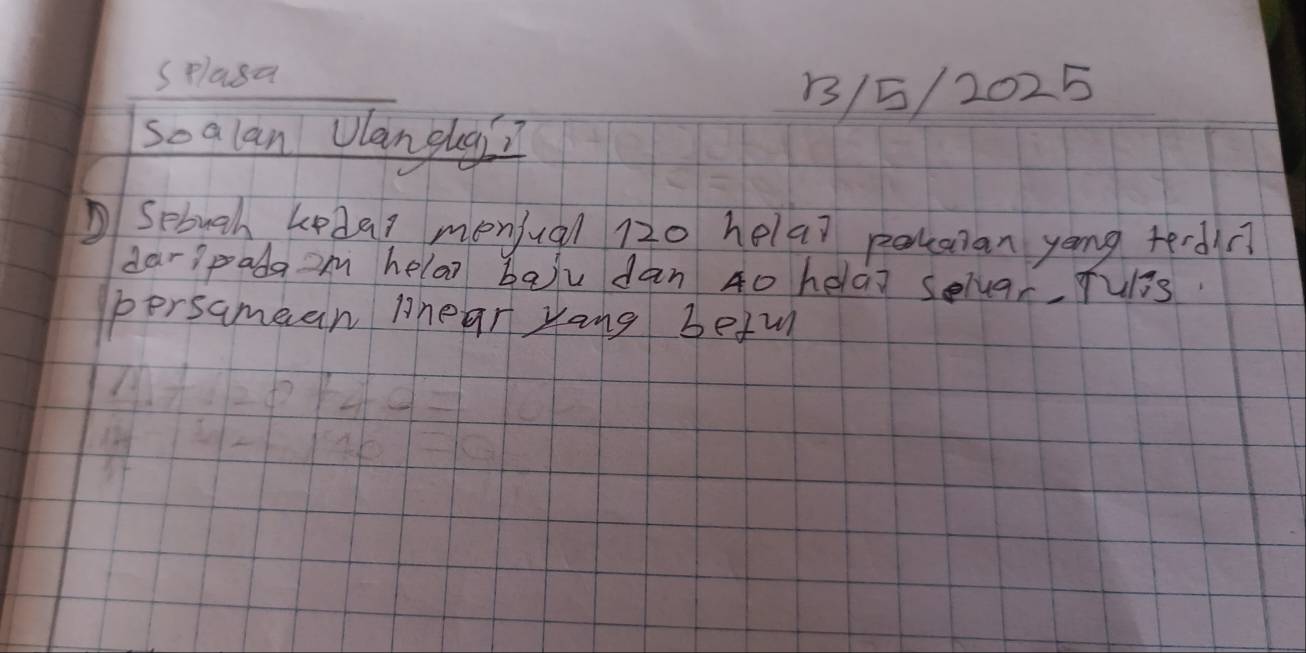 Selasa
13/5/2025
Soalan Ulangkaji
1) Sebuah kedai menjual 120 helai pakaian yang terdiri
daripada 2m helai baju dan 40 helai seluar. Tulis
persamaan linear yang betul